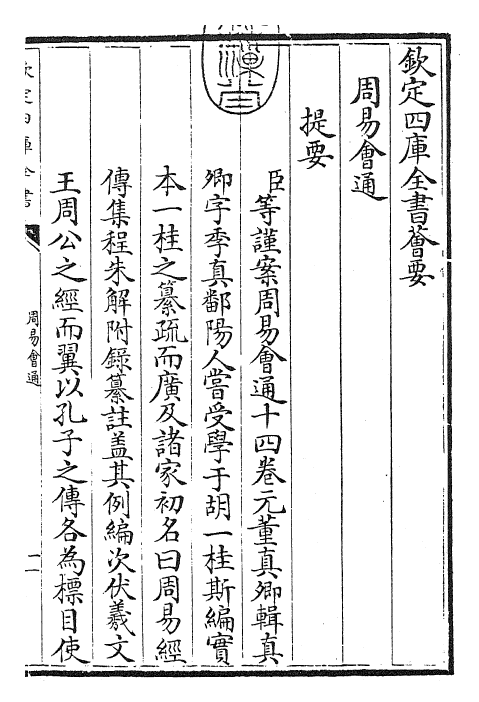 欽定四庫全書薈要
周易會通
提要
臣等謹案周易會通十四卷元董真卿輯真
卿字季真鄱陽人嘗受學于胡一桂斯編實
本一桂之纂疏而廣及諸家初名曰周易經
傳集程朱解附錄纂註盖其例編次伏羲文
王周公之經而翼以孔子之傳各為標目使
欽定四庫全書
周易會通
一